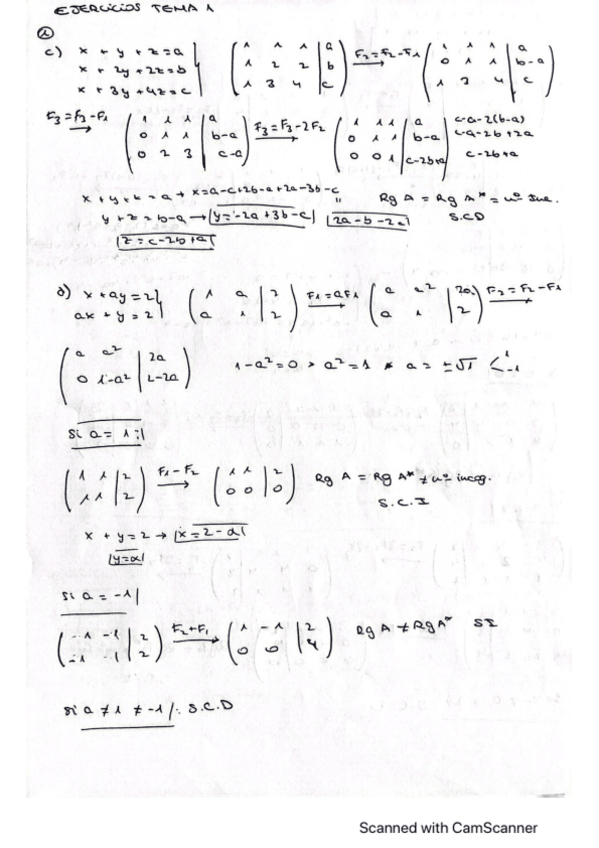 EJERCICIOS TEMA 1
①
c) x + y + z = a
x + 2y + 2z = b
x + 3y + 4z = c
( 1 1 1 | a
1 2 2 | b
1 3 4 | c ) F2=F2-F1 → ( 1 1 1 | a
0 1 1 | b-a
1 3 4 | c )
F3=F3-F1 → ( 1 1 1 | a
0 1 1 | b-a
0 2 3 | c-a ) F3=F3-2F2 → ( 1 1 1 | a
0 1 1 | b-a
0 0 1 | c-2b+a )
c-a-2(b-a)
c-a-2b+2a
c-2b+a
x+y+z=a → x=a-c+2b-a+2a-3b-c
y+z=b-a → y=-2a+3b-c
2a-b-2c
z=c-2b+a
Rg A = Rg A* = nº inc.
S.C.D
x+ay=2
ax+y=2
( 1 a | 2
a 1 | 2 ) F1=aF1 → ( a a² | 2a
a 1 | 2 ) F2=F2-F1 →
( a a² | 2a
0 1-a² | 2-2a ) 1-a²=0 a²=1 a=±√1 < 1
-1
si a = 1
( 1 1 | 2
1 1 | 2 ) F1-F2 → ( 1 1 | 2
0 0 | 0 ) Rg A = Rg A* ≠ nº incog.
S.C.I
x + y = 2 → x=2-α
y=α
si a = -1
( -1 -1 | 2
-1 -1 | 2 ) F2+F1 → ( 1 -1 | 2
0 0 | 4 ) Rg A ≠ Rg A* SI
si a ≠ 1 ≠ -1 : S.C.D
Scanned with CamScanner